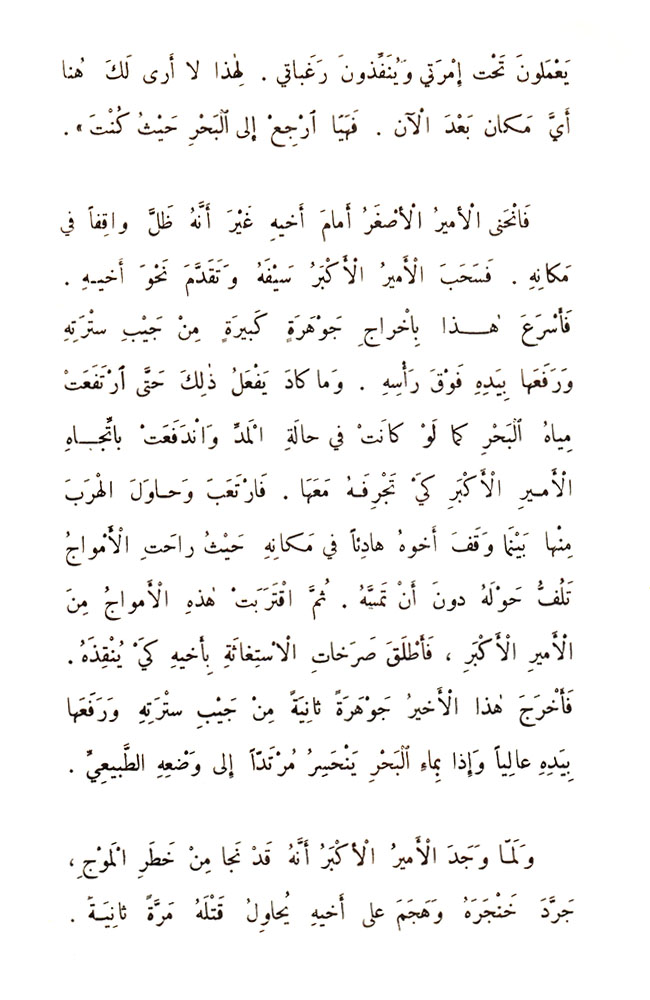 يَعْمَلونَ تَحْت إمْرَتي وَيُنَفِّذونَ رَغَباتي . لِهٰذا لا أَرى لَكَ هُنا
أَيَّ مَكان بَعْدَ الْآن . فَهَيّا ٱرْجِعْ إلى ٱلْبَحْرِ حَيْثُ كُنْتَ » .
فَانْحَنى الْأميرُ الْأصْغَرُ أَمامَ أَخيهِ غَيْرَ أَنَّهُ ظَلَّ واقِفاً في
مَكانِهِ . فَسَحَبَ الْأَميرُ الْأَكْبَرُ سَيْفَهُ وَتَقَدَّمَ نَحْوَ أَخيـهِ .
فَأَسْرَعَ هٰـــذا بِإخْراجِ جَوْهَرَةٍ كَبيرَةٍ مِنْ جَيْبِ سُتْرَتِهِ
وَرَفَعَها بِيَدِهِ فَوْقَ رَأْسِهِ . وَما كادَ يَفْعَلُ ذٰلِكَ حَتَّى ٱرْتَفَعَتْ
مِياهُ ٱلْبَحْرِ كما لَوْ كانَتْ في حالَةِ الْمَدِّ وَانْدَفَعَتْ باتِّجـــاهِ
الْأَمـيرِ الْأَكْبَرِ كَيْ تَجْرِفَـهُ مَعَهَا . فَارْتَعَبَ وَحـاوَلَ الْهَرَبَ
مِنْها بَيْنَما وَقَفَ أَخوهُ هادِئاً في مَكانِهِ حَيْثُ راحَتِ الْأَمْواجُ
تَلُفُّ حَوْلَهُ دونَ أَنْ تَمَسَّهُ . ثُمَّ اقْتَرَبَتْ هٰذِهِ الْأَمواجُ مِنَ
الْأَميرِ الْأَكْبَرِ ، فَأَطْلَقَ صَرَخاتِ الْاسْتِغاثَةِ بِأَخيهِ كَيْ يُنْقِذَهُ .
فَأَخْرَجَ هٰذا الْأَخيرُ جَوْهَرَةً ثانِيَةً مِنْ جَيْبِ سُتْرَتِهِ وَرَفَعَها
بِيَدِهِ عالِياً وَإذا بِماءِ ٱلْبَحْرِ يَنْحَسِرُ مُرْتَدّاً إلى وَضْعِهِ الطَّبيعِيِّ .
وَلَمّا وَجَدَ الْأَميرُ الْأكْبَرُ أَنَّهُ قَدْ نَجا مِنْ خَطَرِ الْمَوْجِ ،
جَرَّدَ خَنْجَرَهُ وَهَجَمَ على أَخيهِ يُحاوِلُ قَتْلَهُ مَرَّةً ثانِيَـةً .